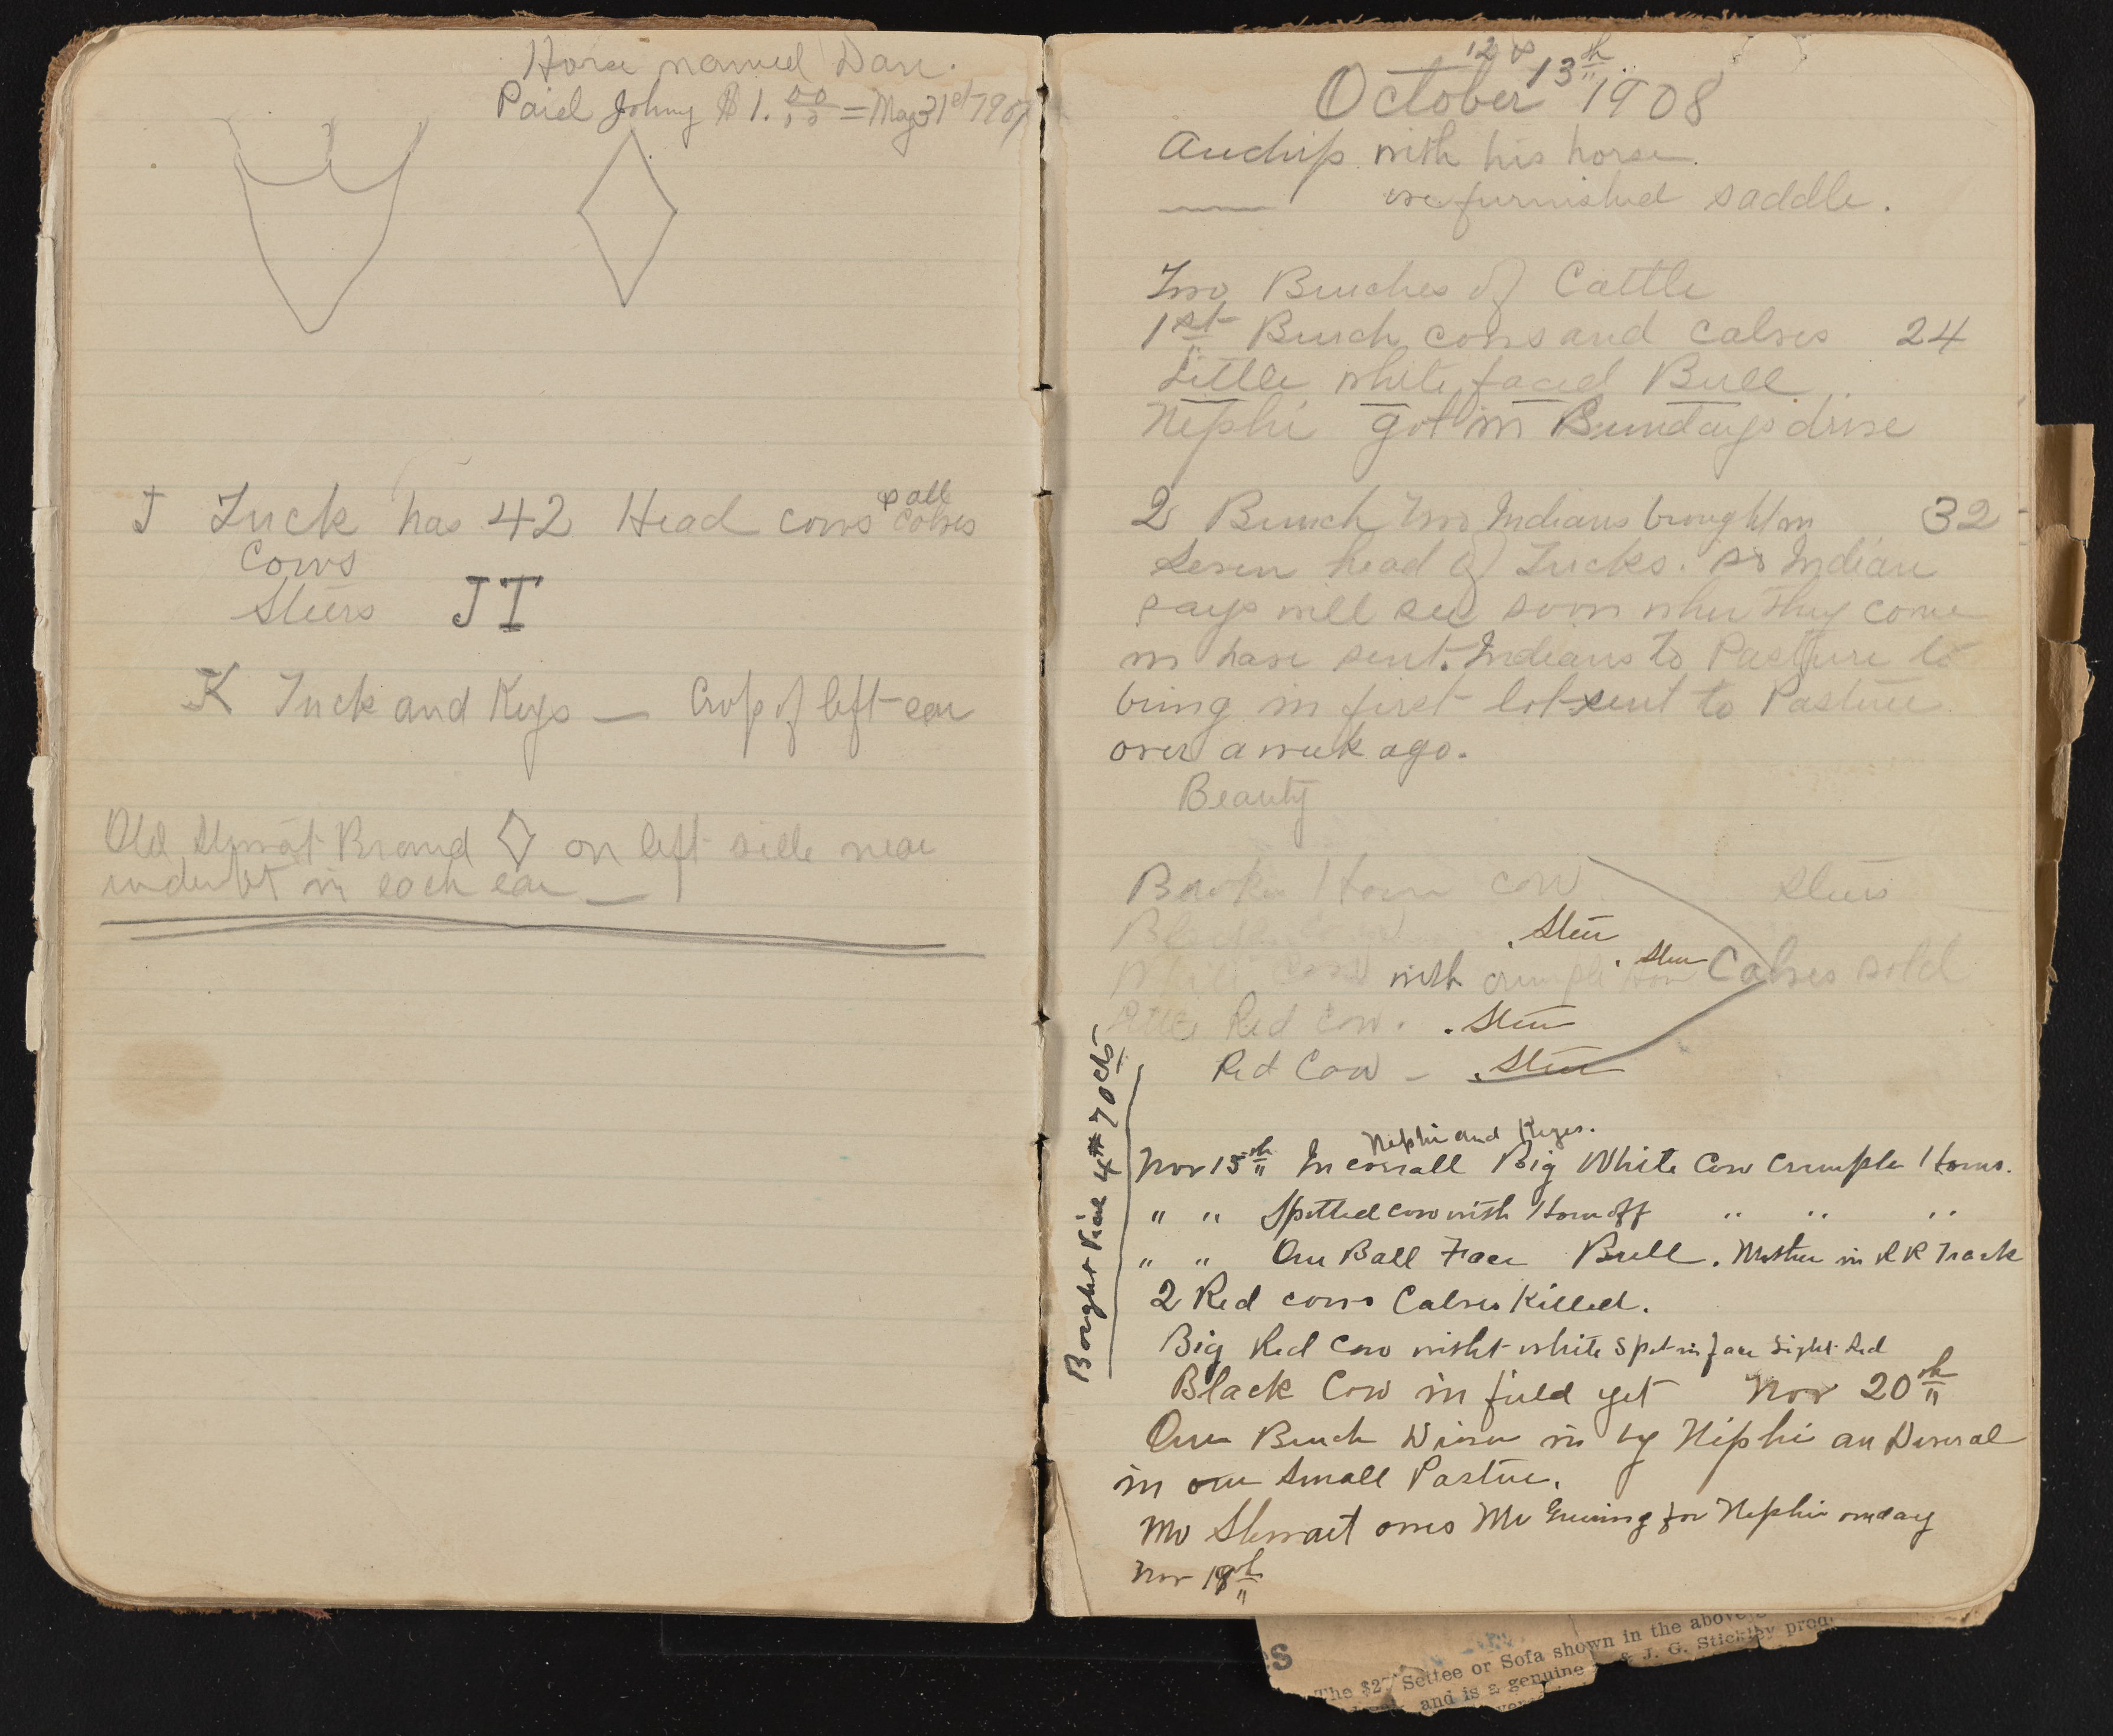 Horse named Dan.
Paid Johny $1.00 = May 31st 190
J Tuck has 42 Head cows & all calves
Cows
Steers JT
K Tuck and Keys — Crop of left ear
Old Stewart Brand ◊ on left side near
underbit in each ear —
12 & 13th
October 1908
with his horse.
we furnished saddle.
Two Bunches of Cattle
1st Bunch cows and calves 24
Little white faced Bull
Nephi got in Bundays drive
2 Bunch Two Indians brought in 32
seven head of Tucks. so Indian
says will see soon when they come
in have sent. Indians to Pasture to
bring in first lot sent to Pasture
over a week ago.
Beauty
Broken Horn cow Steers
Black Cow . Steer
White Cow with crumple Horn . Steer Calves sold
Little Red Cow . . Steer
Red Cow - . Steer
Bought Veal 4# 70cts
Nephi and Keyes.
Nov 15th In corrall Big White Cow Crumple Horns.
" " Spotted cow with Horn off " " "
" " One Ball Face Bull . Mother in R R Track
2 Red cows Calves Killed.
Big Red Cow witht white Spot in face Light Red
Black Cow in field yet Nov 20th
One Bunch Driven in by Nephi an Deseral
in our Small Pasture.
Mr Stewart owes Me for Nephi one day
Nov 18th
The $27 Settee or Sofa shown in the above
and is a genuine & J. G. Stickley